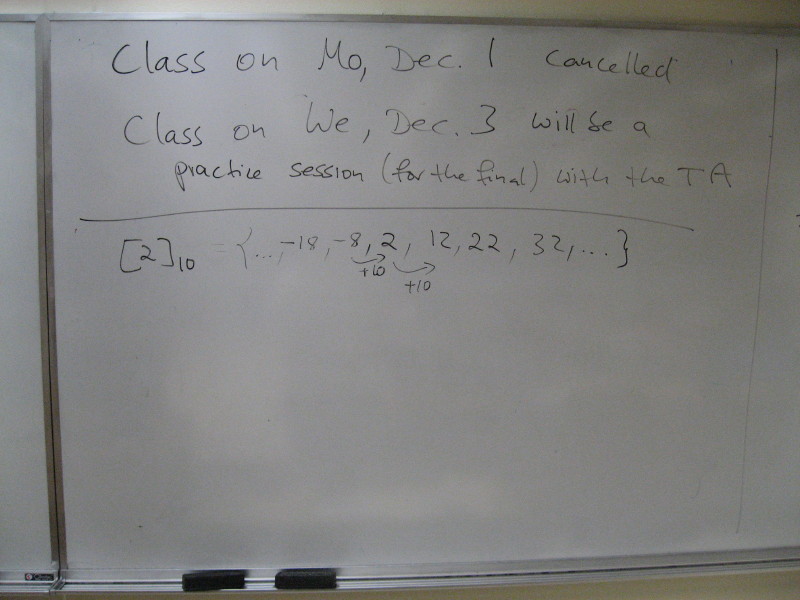 Class on Mo, Dec. 1 cancelled
Class on We, Dec. 3 will be a
practice session (for the final) with the TA
[2]₁₀ = {..., -18, -8, 2, 12, 22, 32, ...}
+10
+10